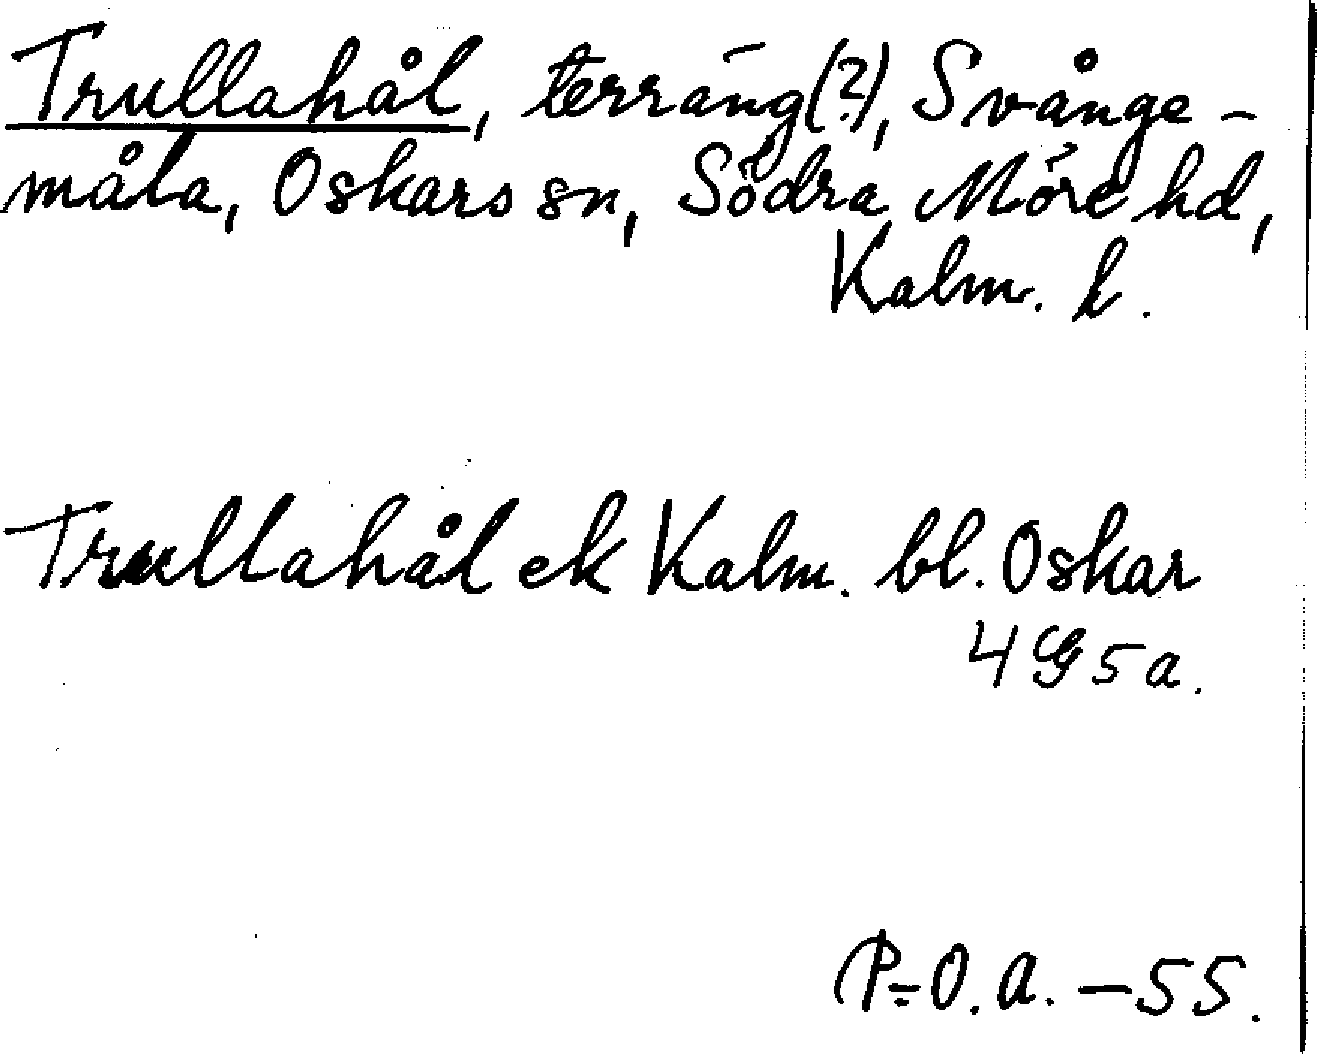 Trullahål, terräng(?), Svånge-
måla, Oskars sn, Södra Möre hd,
Kalm. l.
Trullahål ek Kalm. bl. Oskar
4 G 5 a.
P-O. A. - 55.